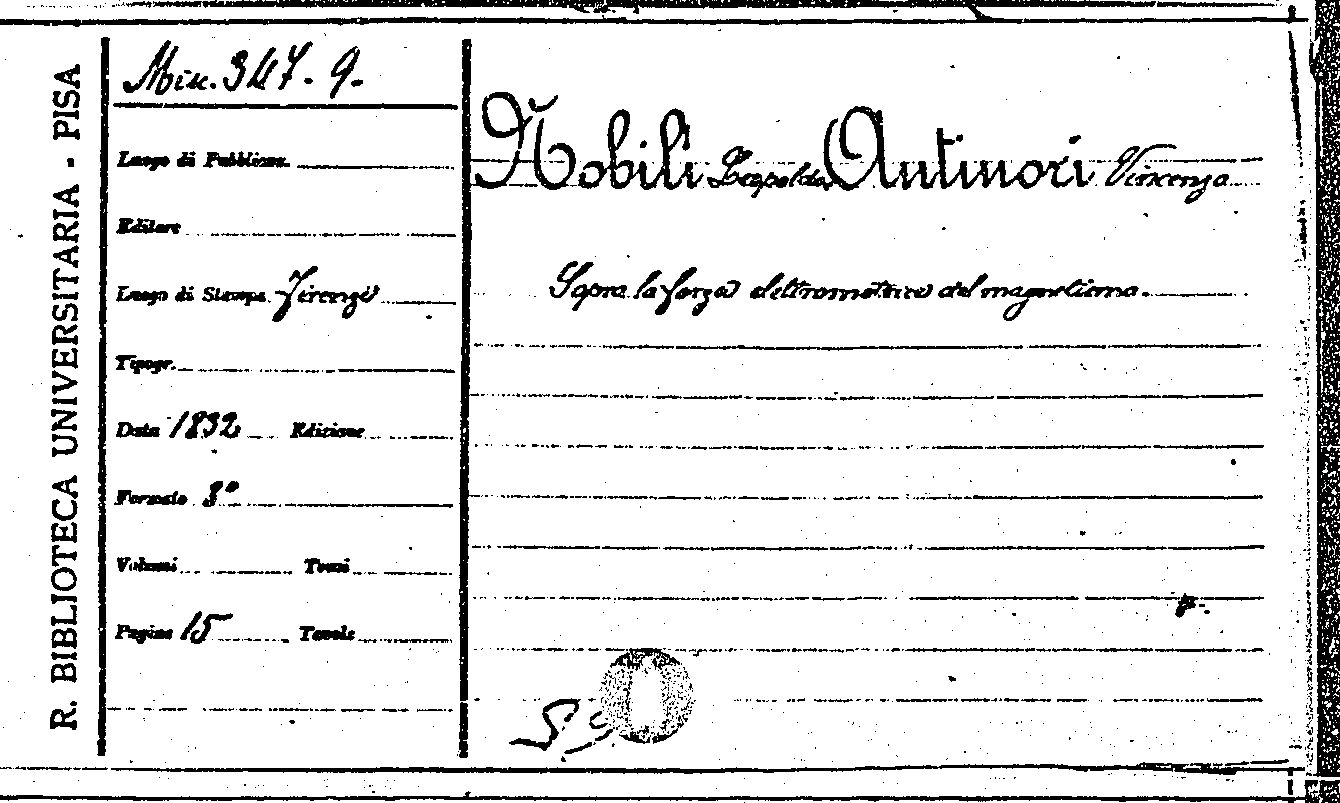 R. BIBLIOTECA UNIVERSITARIA - PISA
Misc. 347. 9.
Luogo di Pubblicaz.
Editore
Luogo di Stampa Firenze
Tipogr.
Data 1832 Edizione
Formato 8°
Volumi Tomi
Pagine 15 Tavole
Nobili Leopoldo Antinori Vincenzo
Sopra la forza elettromotrice del magnetismo.